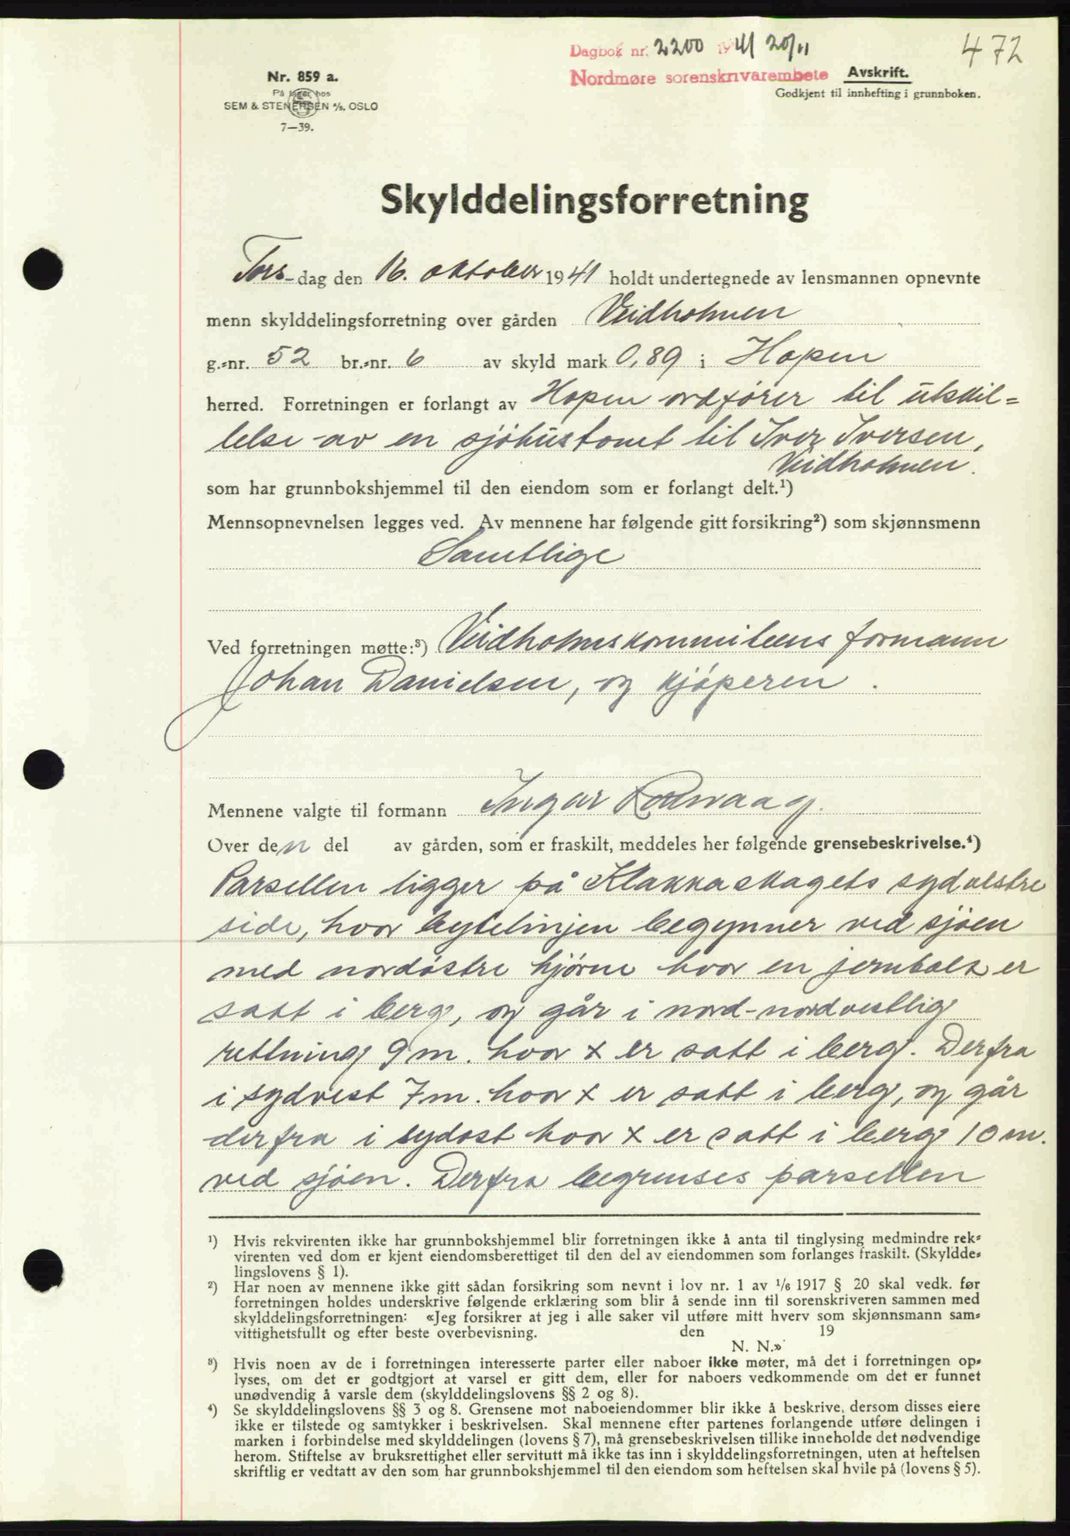 Dagbok nr. 2200 1941 20/11
472
Nordmøre sorenskrivarembete
Avskrift.
Godkjent til innhefting i grunnboken.
Nr. 859 a.
På lager hos
SEM & STENERSEN A/S, OSLO
7—39.
Skylddelingsforretning
Tors-dag den 16. oktober 1941 holdt undertegnede av lensmannen opnevnte
menn skylddelingsforretning over gården Veidholmen
g.-nr. 52 br.-nr. 6 av skyld mark 0,89 i Hopen
herred. Forretningen er forlangt av Hopen ordfører til utskil=
lelse av en sjöhustomt til Iver Iversen,
Veidholmen.
som har grunnbokshjemmel til den eiendom som er forlangt delt.¹)
Mennsopnevnelsen legges ved. Av mennene har følgende gitt forsikring²) som skjønnsmenn
Samtlige
Ved forretningen møtte:³) Veidholmskommiteens formann
Johan Danielsen, og kjöperen.
Mennene valgte til formann Ingar Rodvaag.
Over den del av gården, som er fraskilt, meddeles her følgende grensebeskrivelse.⁴)
Parsellen ligger på Klakkaskagets sydvestre
side, hvor bytelinjen begynner ved sjöen
med nordöstre hjörne hvor en jernbolt er
satt i berg, og går i nord-nordvestlig
rettning 9 m. hvor x er satt i berg. Derfra
i sydvest 7 m. hvor x er satt i berg, og går
derfra i sydost hvor x er satt i berg 10 m.
ved sjöen. Derfra begrenses parsellen
¹) Hvis rekvirenten ikke har grunnbokshjemmel blir forretningen ikke å anta til tinglysing medmindre rek-
virenten ved dom er kjent eiendomsberettiget til den del av eiendommen som forlanges fraskilt. (Skyldde-
lingslovens § 1).
²) Har noen av mennene ikke gitt sådan forsikring som nevnt i lov nr. 1 av 1/6 1917 § 20 skal vedk. før
forretningen holdes underskrive følgende erklæring som blir å sende inn til sorenskriveren sammen med
skylddelingsforretningen: «Jeg forsikrer at jeg i alle saker vil utføre mitt hverv som skjønnsmann sam-
vittighetsfullt og efter beste overbevisning. den 19
N. N.»
³) Hvis noen av de i forretningen interesserte parter eller naboer ikke møter, må det i forretningen op-
lyses, om det er godtgjort at varsel er gitt dem, eller for naboers vedkommende om det er funnet
unødvendig å varsle dem (skylddelingslovens §§ 2 og 8).
⁴) Se skylddelingslovens §§ 3 og 8. Grensene mot naboeiendommer blir ikke å beskrive, dersom disses eiere
ikke er tilstede og samtykker i beskrivelsen. Skal mennene efter partenes forlangende utføre delingen i
marken i forbindelse med skylddelingen (lovens § 7), må grensebeskrivelsen tillike inneholde det nødvendige
herom. Stiftelse av bruksrettighet eller servitutt må ikke tas inn i skylddelingsforretningen, uten at heftelsen
skriftlig er vedtatt av den som har grunnbokshjemmel til den eiendom som heftelsen skal hvile på (lovens § 5).